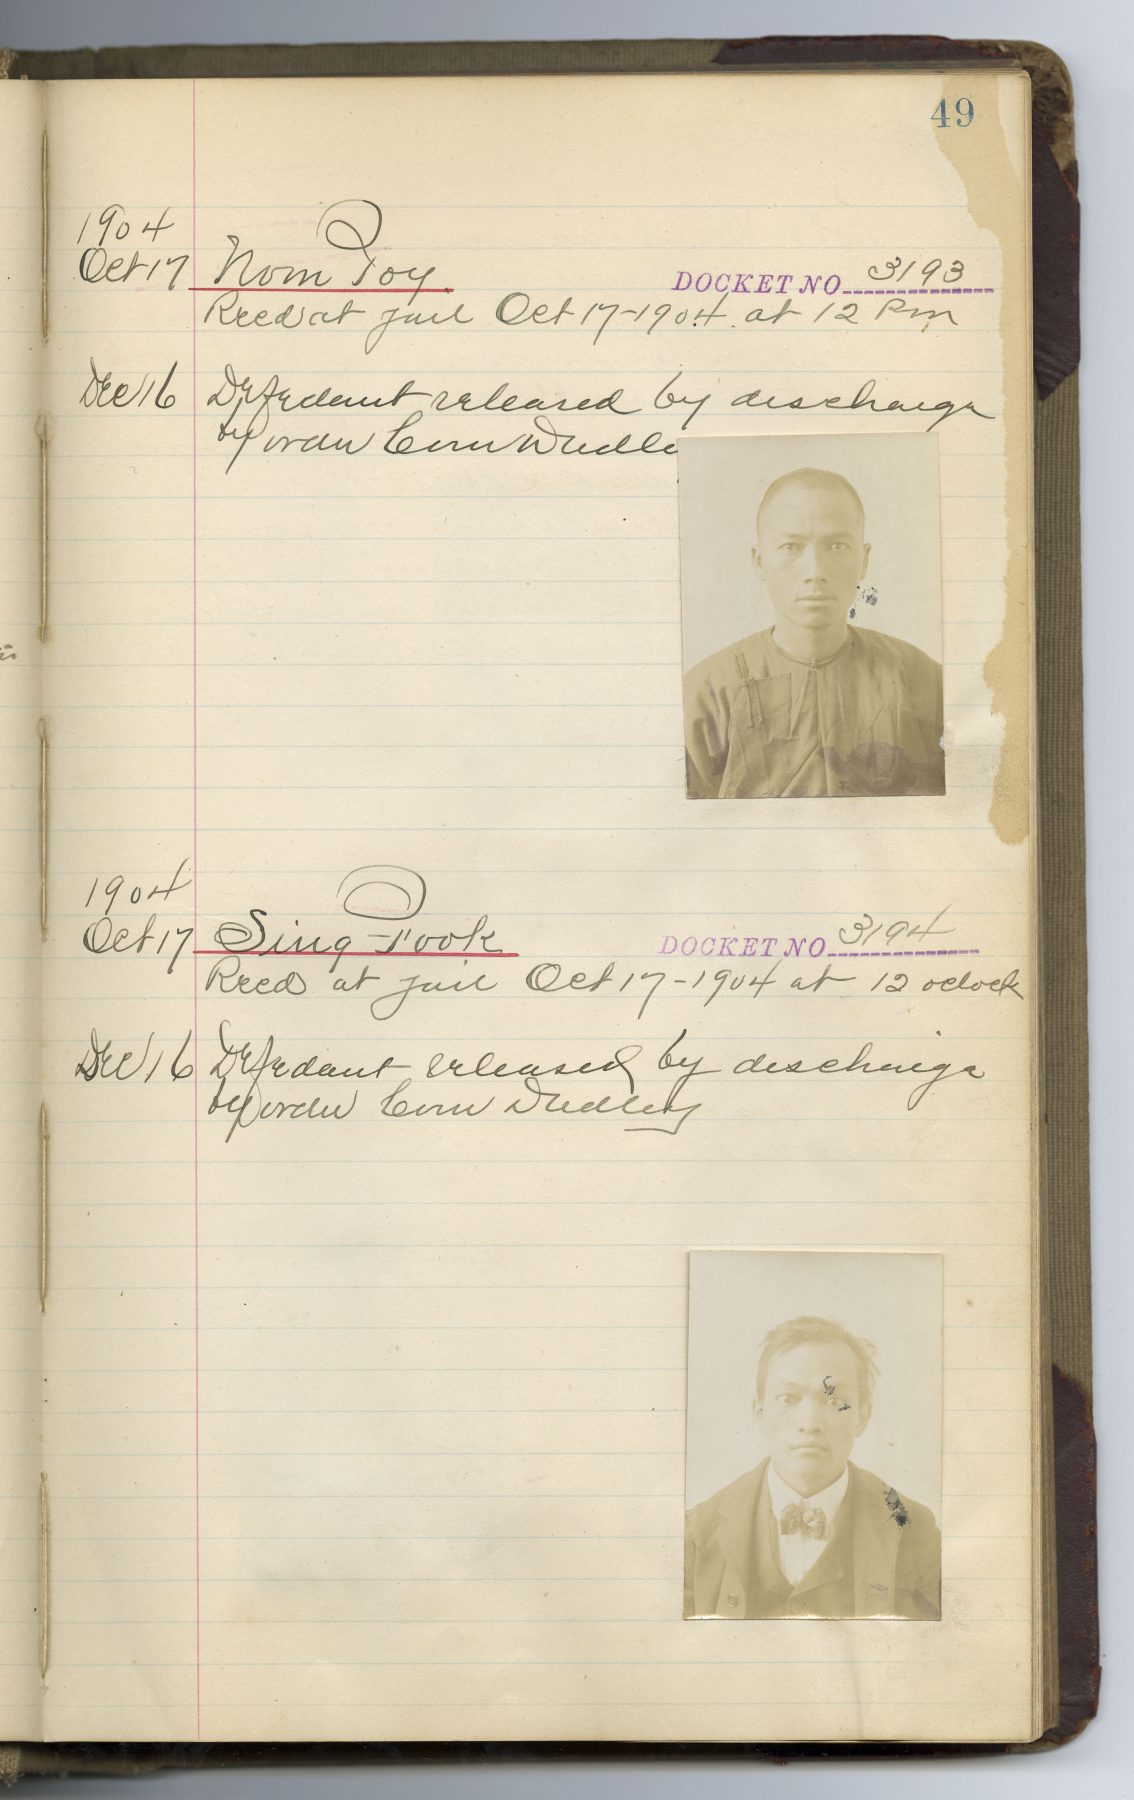 49
1904
Oct 17 Nom Toy DOCKET NO 3193
Recd at jail Oct 17-1904 at 12 Pm
Dec 16 Defedant released by discharge
by order Com Dudle
1904
Oct 17 Sing Took DOCKET NO 3194
Recd at jail Oct 17-1904 at 12 oclock
Dec 16 Defedant released by discharge
by order Com Dudley